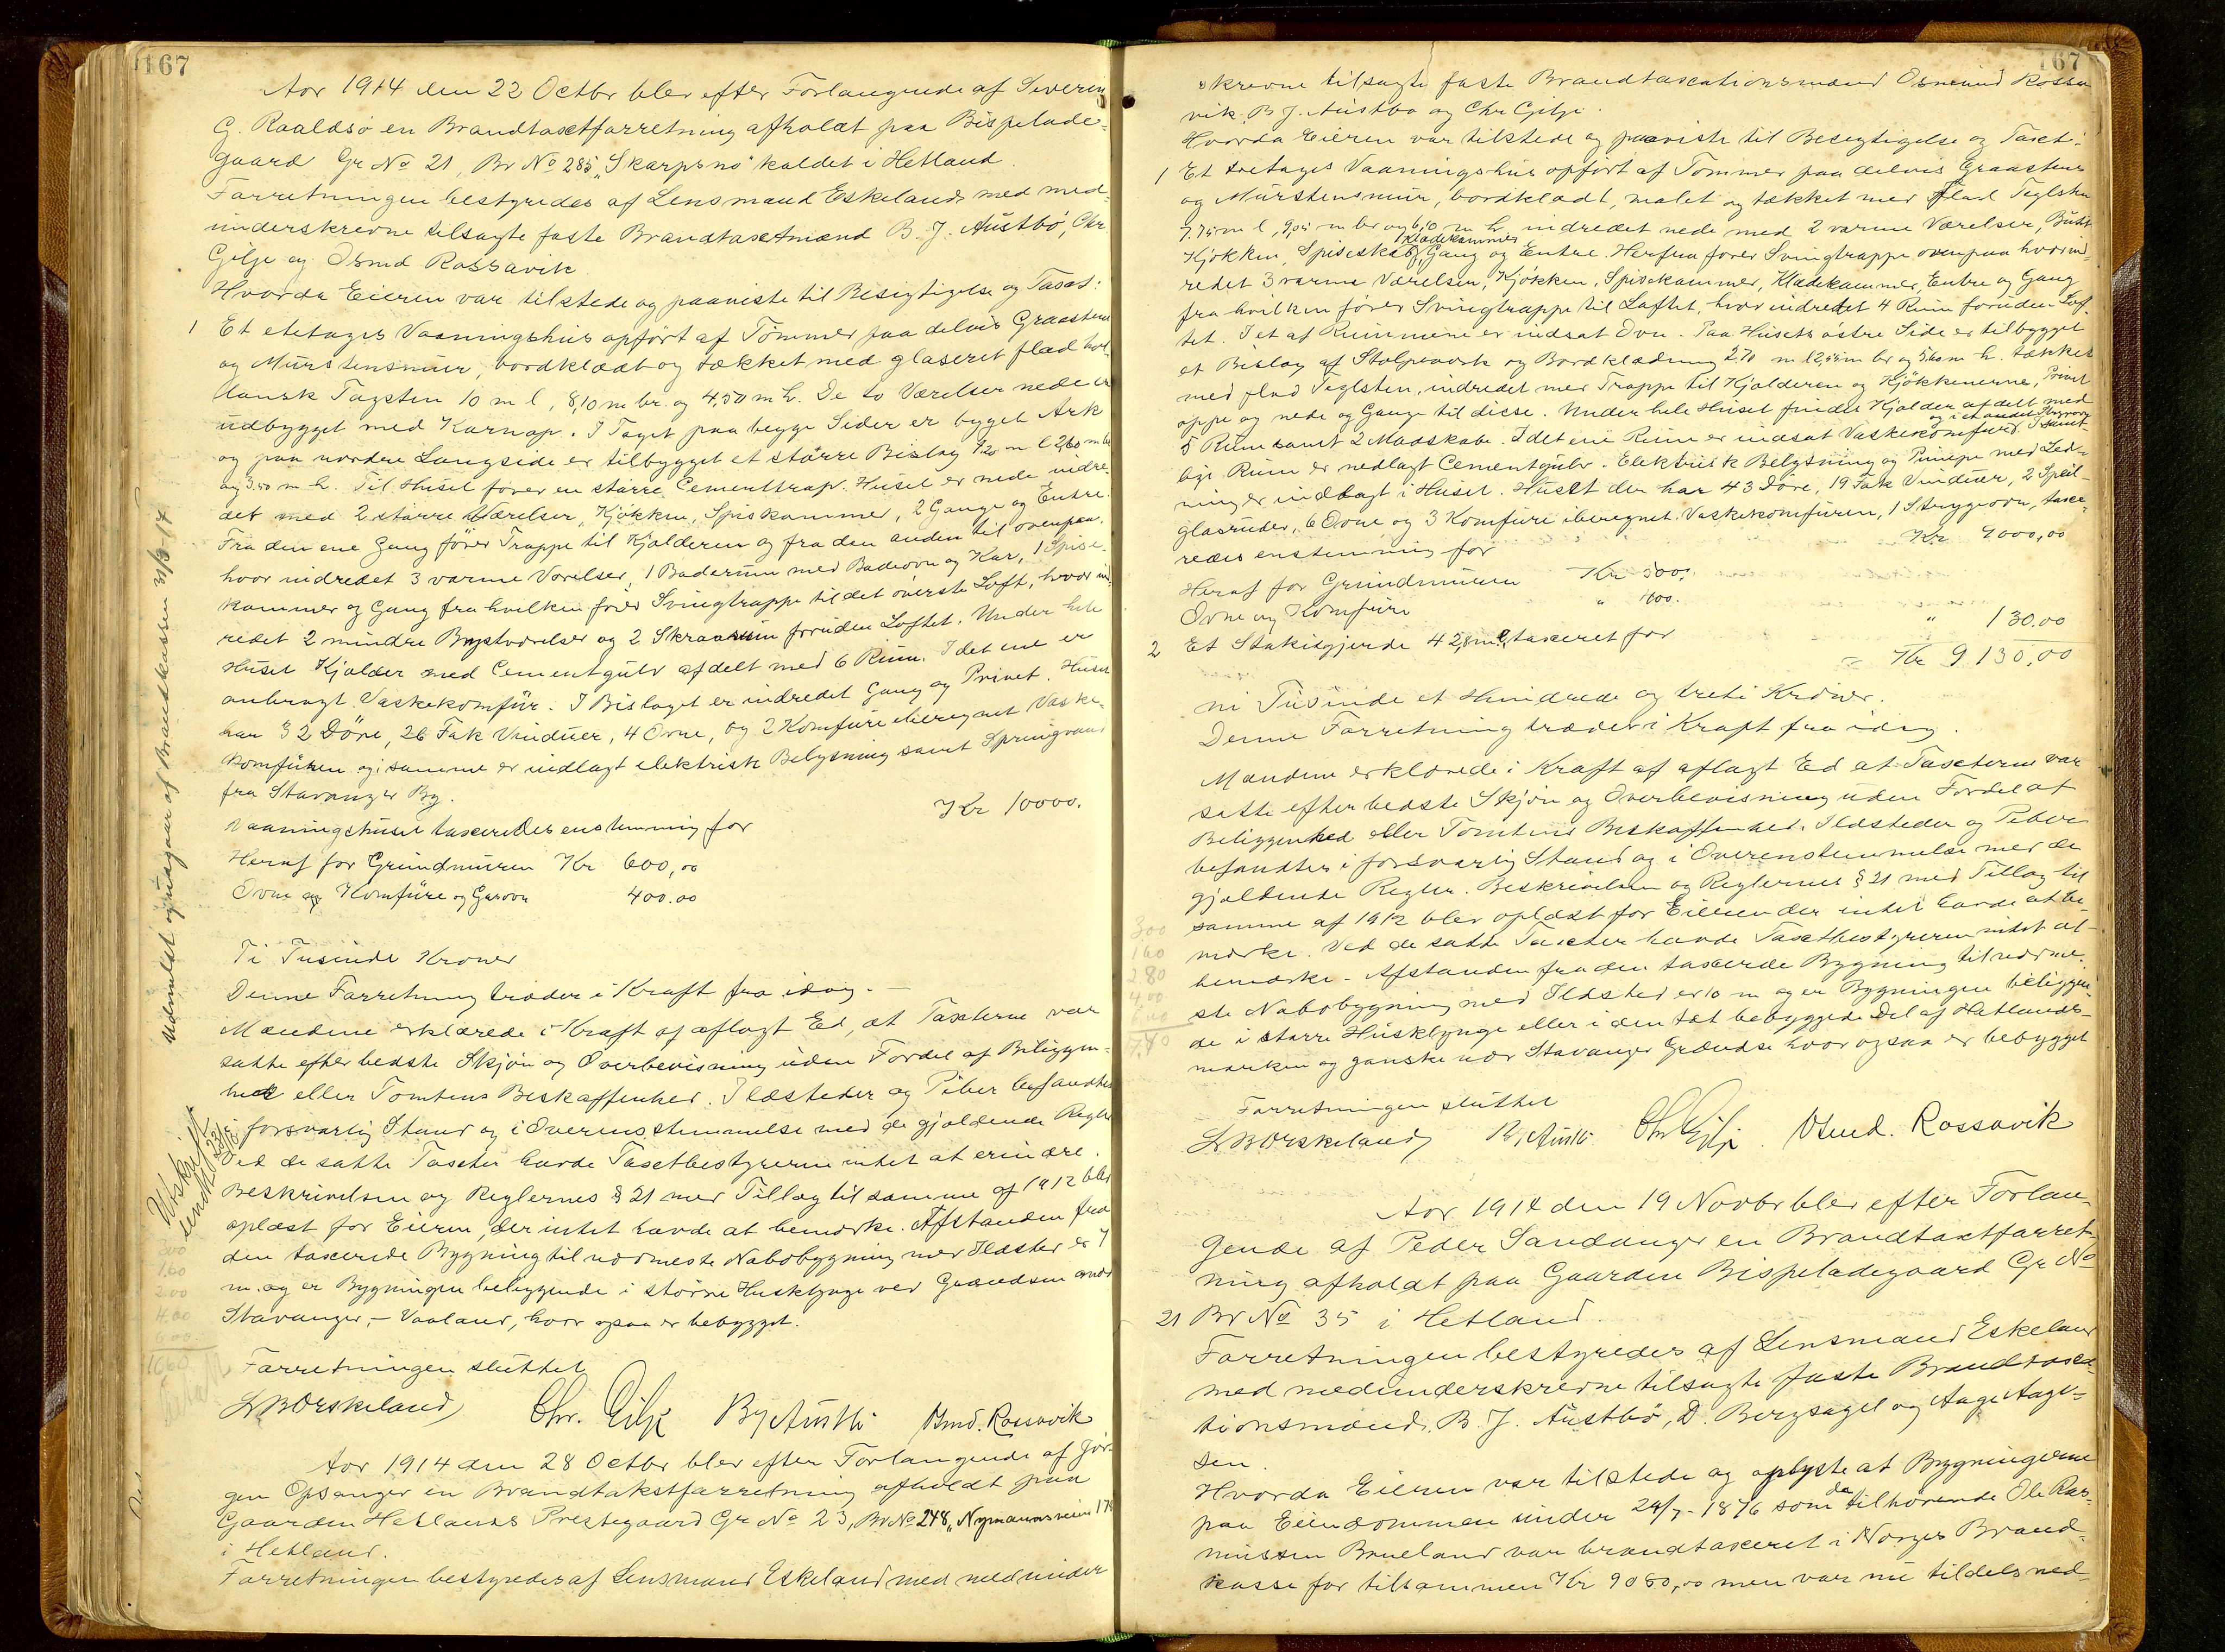 167
Aar 1914 den 22 Octbr blev efter Forlangende af Severin
G. Raaldsö en Brandtaxtforretning afholdt paa Bispelade-
gaard Gr No 21, Br No 285 "Skarpsno" kaldet i Hetland.
Forretningen bestyredes af Lensmand Eskeland med med-
underskrevne tilsagte faste Brandtaxtmænd B. J. Austbö, Chr
Gilje og Osmd Rossavik
Hvorda Eieren var tilstede og paaviste til Besigtigelse og Taxt:
1 Et etetages Vaaningshus opfört af Tömmer paa delvis Graastens
og Murstensmur, bordklædt og tækket med glaseret flad hol-
landsk Tagsten 10 m l, 8,10 m br. og 4,50 m h. De to Værelser nede er
udbygget med Karnap. I Taget paa begge Sider er bygget Ark
og paa nordre Langside er tilbygget et större Bislag 7,20 m l 2,60 m br
og 3.50 m h. Til Huset förer en större Cementtrap. Huset er nede indre-
det med 2 større Værelser, Kjökken, Spiskammer, 2 Gange og Entre.
Fra den ene Gang förer Trappe til Kjælderen og fra den anden til ovenpaa.
hvor indredet 3 varme Værelser, 1 Baderum med Badeovn og Kar, 1 Spise-
kammer og Gang fra hvilken förer Svingtrappe til det överste Loft, hvor ind-
redet 2 mindre Brystværelser og 2 Skraarum foruden Loftet. Under hele
Huset Kjælder med Cementgulv afdelt med 6 Rum. I det ene er
anbragt Vaskekomfür. I Bislaget er indredet Gang og Privet. Huset
har 32 Döre, 26 Fak Vinduer, 4 Ovne, og 2 Komfure iberegnet Vaske-
komfüren og i samme er indlagt elektrisk Belysning samt Springvand
fra Stavanger By.
Vaaningshuset taxeredes enstemmig for Kr 10000.
Heraf for Grundmuren Kr 600,00
Ovne og Komfüre og Gasovn 400.00
Ti Tusinde Kroner
Denne Forretning træder i Kraft fra idag.-
Mændene erklærede i Kraft af aflagt Ed, at Taxterne var
satte efter bedste Skjön og Overbevisning uden Fordel af Beliggen-
hed eller Tomtens Beskaffenhed. Ildsteder og Piber befandtes
i forsvarlig Stand og i Overensstemmelse med de gjældende Regler
Ved de satte Taxter havde Taxtbestyreren intet at erindre.
Beskrivelsen og Reglernes § 21 med Tillæg til samme af 1912 blev
oplæst for Eieren, der intet havde at bemærke. Afstanden fra
den taxerede Bygning til nærmeste Nabobygning med Ildsted er 7
m. og er Bygningen beliggende i större Husklynge ved Grændsen mod
Stavanger, - Vaaland, hvor ogsaa er bebygget.
Forretningen sluttet
Chr. Gilje B J Austbö Osmd. Rossavik
Aar 1914 den 28 Octbr blev efter Forlangende af Jör-
gen Opsanger en Brandtakstforretning afholdt paa
Gaarden Hetlands Prestegaard Gr No 23, Br No 248, "Nymannsveien 17
i Hetland.
Forretningen bestyredes af Lensmand Eskeland med medunder
Udmeldt og udgaar af Brandkassen 31/3-17
Utskrift
sendt 23/12
200
100
200
400
600
1660
167
skrevne tilsagte faste Brandtaxationsmænd Osmund Rossa
vik, B J. Austbö og Chr Gilje.
Hvorda Eieren var tilstede og paaviste til Besigtigelse og Taxt:
1 Et toetages Vaaningshus opfört af Tömmer paa delvis Graastens
og Murstensmur, bordklædt, malet og tækket med flad Teglsten
9.75 m l, 9,05 m br og 6,10 m h indredet nede med 2 varme Værelser,
Kjökken, Spiseskab, 1 Klædekammer, Gang og Entre. Herfra förer Svingtrappe ovenpaa hvor ind-
redet 3 varme Værelser, Kjökken, Spisekammer, Klædekammer, Entre og Gang
fra hvilken förer Svingtrappe til Loftet, hvor indredet 4 Rum foruden Lof-
tet. I et af Rummene er indsat Ovn. Paa Husets östre Side er tilbygget
et Bislag af Stolpeverk og Bordklædning 2.70 m l 2,55 m br og 5,60 m h. tækket
med flad Teglsten, indredet med Trappe til Kjælderen og Kjökkenerne, Privet
oppe og nede og Gange til disse. Under hele Huset findes Kjælder afdelt med
5 Rum samt 2 Madskabe. I det ene Rum er indsat Vaskekomfur og i et andet Strygeovn I samt-
lige Rum er nedlagt Cementgulv. Elektrisk Belysning og Pumpe med Led-
ning er indlagt i Huset. Huset der har 43 Döre, 19 Fak Vinduer, 2 Speil-
glasruder, 6 Ovne og 3 Komfure iberegnet Vaskekomfuren, 1 Strygeovn, taxe-
redes enstemmig for Kr 9000,00
Heraf for Grundmuren Kr 500.
Ovne og Komfüre " 400.
2 Et Stakitgjerde 42,8 m l, taxeret for " 130.00
= Kr 9130,00
ni Tusinde et Hundrede og treti Kroner.
Denne Forretning træder i Kraft fra idag.
Mændene erklærede i Kraft af aflagt Ed at Taxterne var
satte efter bedste Skjön og Overbevisning uden Fordel af
Beliggenhed eller Tomtens Beskaffenhed. Ildsteder og Piber
befandtes i forsvarlig Stand og i Overensstemmelse med de
gjældende Regler. Beskrivelsen og Reglernes § 21 med Tillæg til
samme af 1912 blev oplæst for Eieren der intet havde at be-
mærke. Ved de satte Taxter havde Taxtbestyreren intet at
bemærke. Afstanden fra den taxerede Bygning til nærme-
ste Nabobygning med Ildsted er 10 m og er Bygningen beliggen-
de i större Husklynge eller i den tæt bebyggede Del af Hetlands-
marken og ganske nær Stavanger Grændse hvor ogsaa er bebygget
300
160
280
400
Forretningen sluttet
B J Austbö Chr Gilje Osmd. Rossavik
Aar 1914 den 19 Novbr blev efter Forlan-
gende af Peder Sandanger en Brandtaxtforret-
ning afholdt paa Gaarden Bispeladegaard Gr No
21 Br No 35 i Hetland.
Forretningen bestyredes af Lensmand Eskeland
med medunderskrevne tilsagte faste Brandtaxa-
tionsmænd, B. J. Austbö, D. Bergsagel og Aage Aage-
sen.
Hvorda Eieren var tilstede og oplyste at Bygningerne
paa Eiendommen under 24/7-1876 som da tilhørende Ole Ras-
mussen Brueland var brandtaxeret i Norges Brand-
kasse for tilsammen Kr 9080,00 men var nu tildels ned-